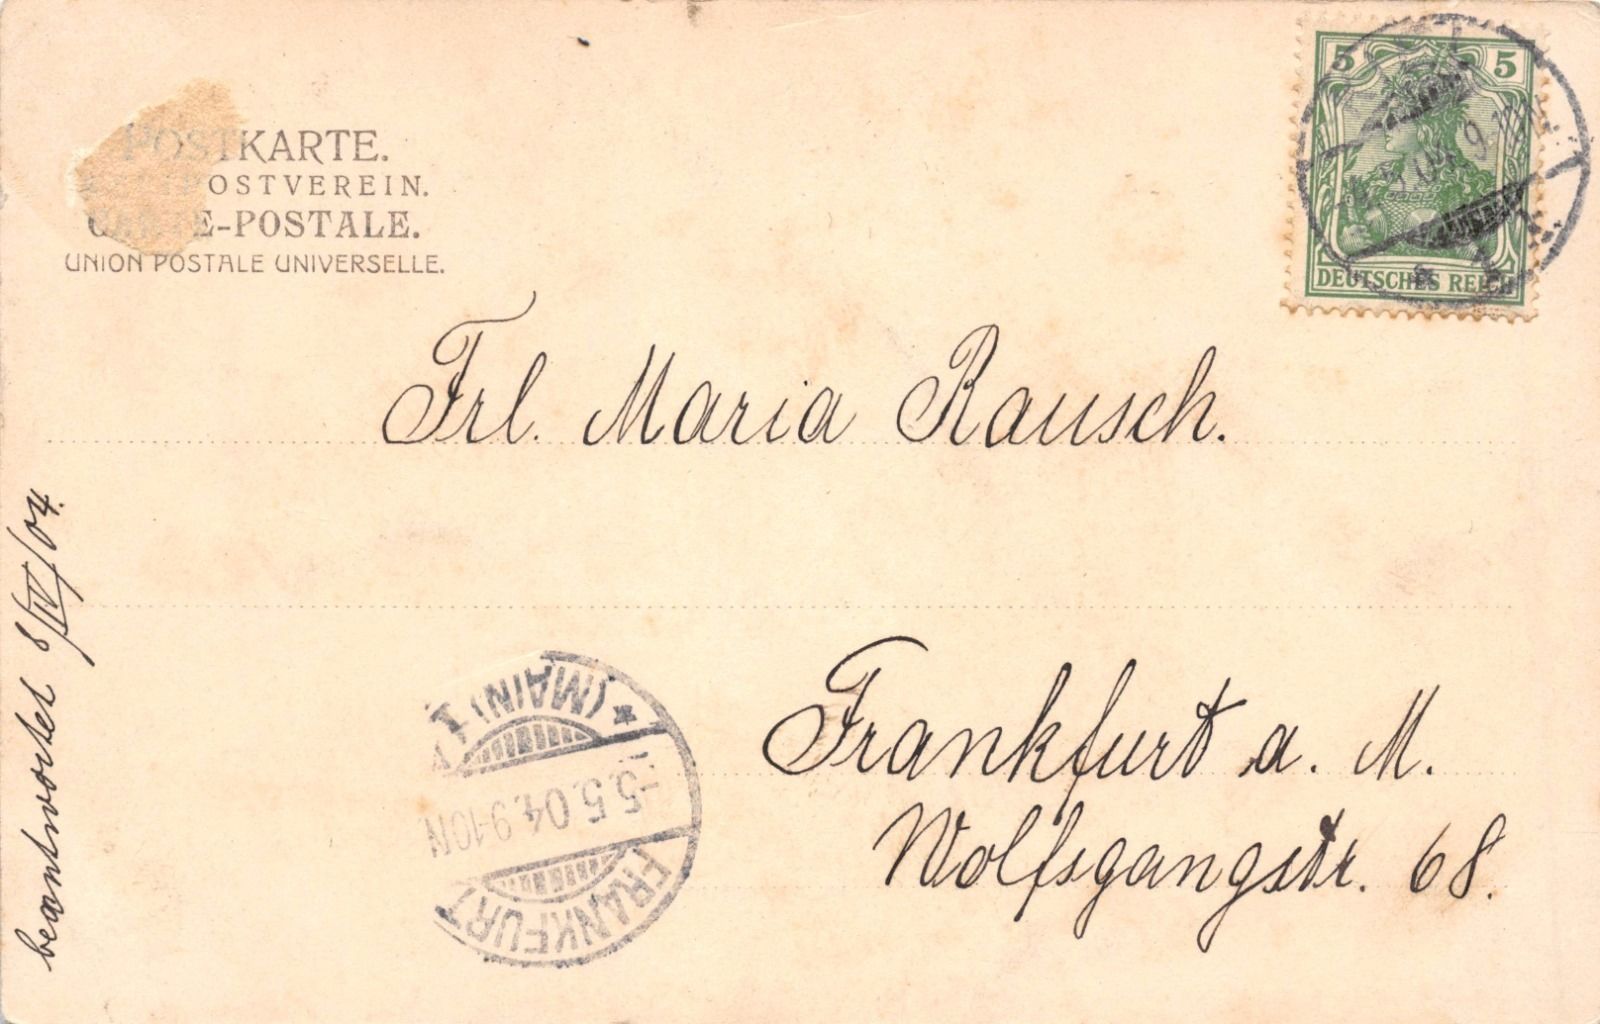 POSTKARTE.
POSTVEREIN.
CARTE-POSTALE.
UNION POSTALE UNIVERSELLE.
5 5
DEUTSCHES REICH
5.04 9
Frl. Maria Rausch.
Frankfurt a. M.
Wolfsgangstr. 68.
FRANKFURT
(MAIN) 1
* 
-5.5.04.9-10N
beantwortet 8/IV/04.